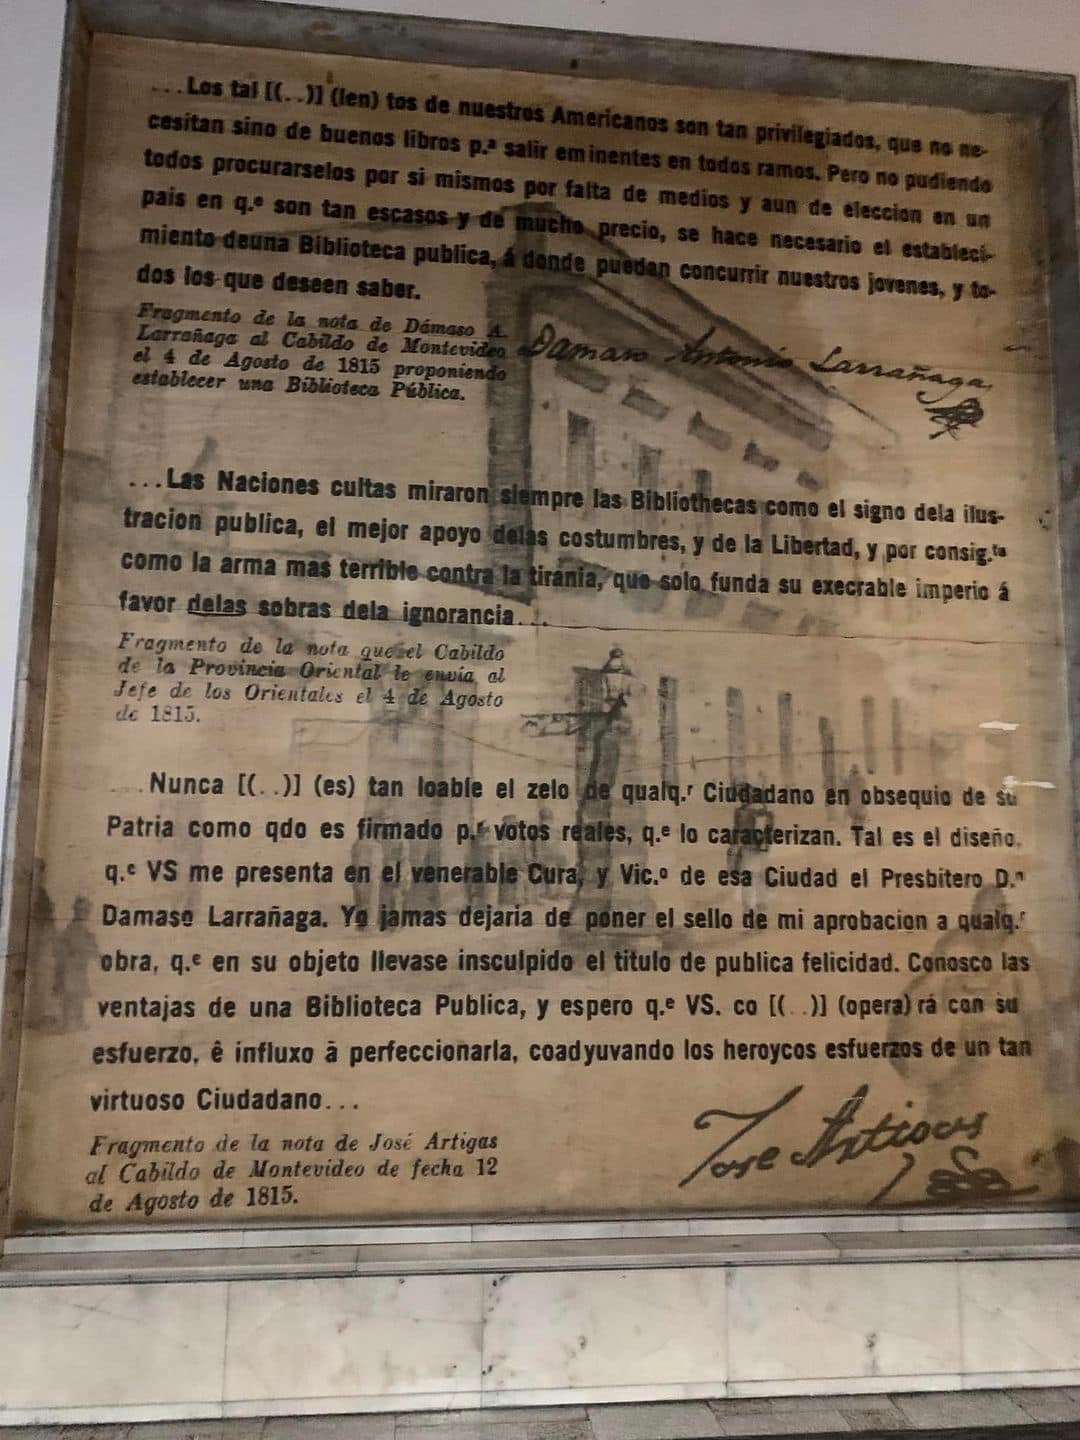 ...Los tal [(..)] (len) tos de nuestros Americanos son tan privilegiados, que no ne-
cesitan sino de buenos libros p.ª salir eminentes en todos ramos. Pero no pudiendo
todos procurarselos por si mismos por falta de medios y aun de eleccion en un
pais en q.e son tan escasos y de mucho precio, se hace necesario el estableci-
miento deuna Biblioteca publica, á donde puedan concurrir nuestros jovenes, y to-
dos los que deseen saber.
Fragmento de la nota de Dámaso A.
Larrañaga al Cabildo de Montevideo
el 4 de Agosto de 1815 proponiendo
establecer una Biblioteca Pública.
Damaso Antonio Larrañaga
...Las Naciones cultas miraron siempre las Bibliothecas como el signo dela ilus-
tracion publica, el mejor apoyo delas costumbres, y de la Libertad, y por consig.ta
como la arma mas terrible contra la tirania, que solo funda su execrable imperio á
favor delas sobras dela ignorancia...
Fragmento de la nota que el Cabildo
de la Provincia Oriental le envía al
Jefe de los Orientales el 4 de Agosto
de 1815.
...Nunca [(..)] (es) tan loable el zelo de qualq.r Ciudadano en obsequio de su
Patria como qdo es firmado p.r votos reales, q.e lo caracterizan. Tal es el diseño,
q.e VS me presenta en el venerable Cura, y Vic.o de esa Ciudad el Presbitero D.n
Damaso Larrañaga. Yo jamas dejaria de poner el sello de mi aprobacion a qualq.r
obra, q.e en su objeto llevase insculpido el titulo de publica felicidad. Conosco las
ventajas de una Biblioteca Publica, y espero q.e VS. co [(..)] (opera) rá con su
esfuerzo, ê influxo â perfeccionarla, coadyuvando los heroycos esfuerzos de un tan
virtuoso Ciudadano...
Fragmento de la nota de José Artigas
al Cabildo de Montevideo de fecha 12
de Agosto de 1815.
Jose Artigas